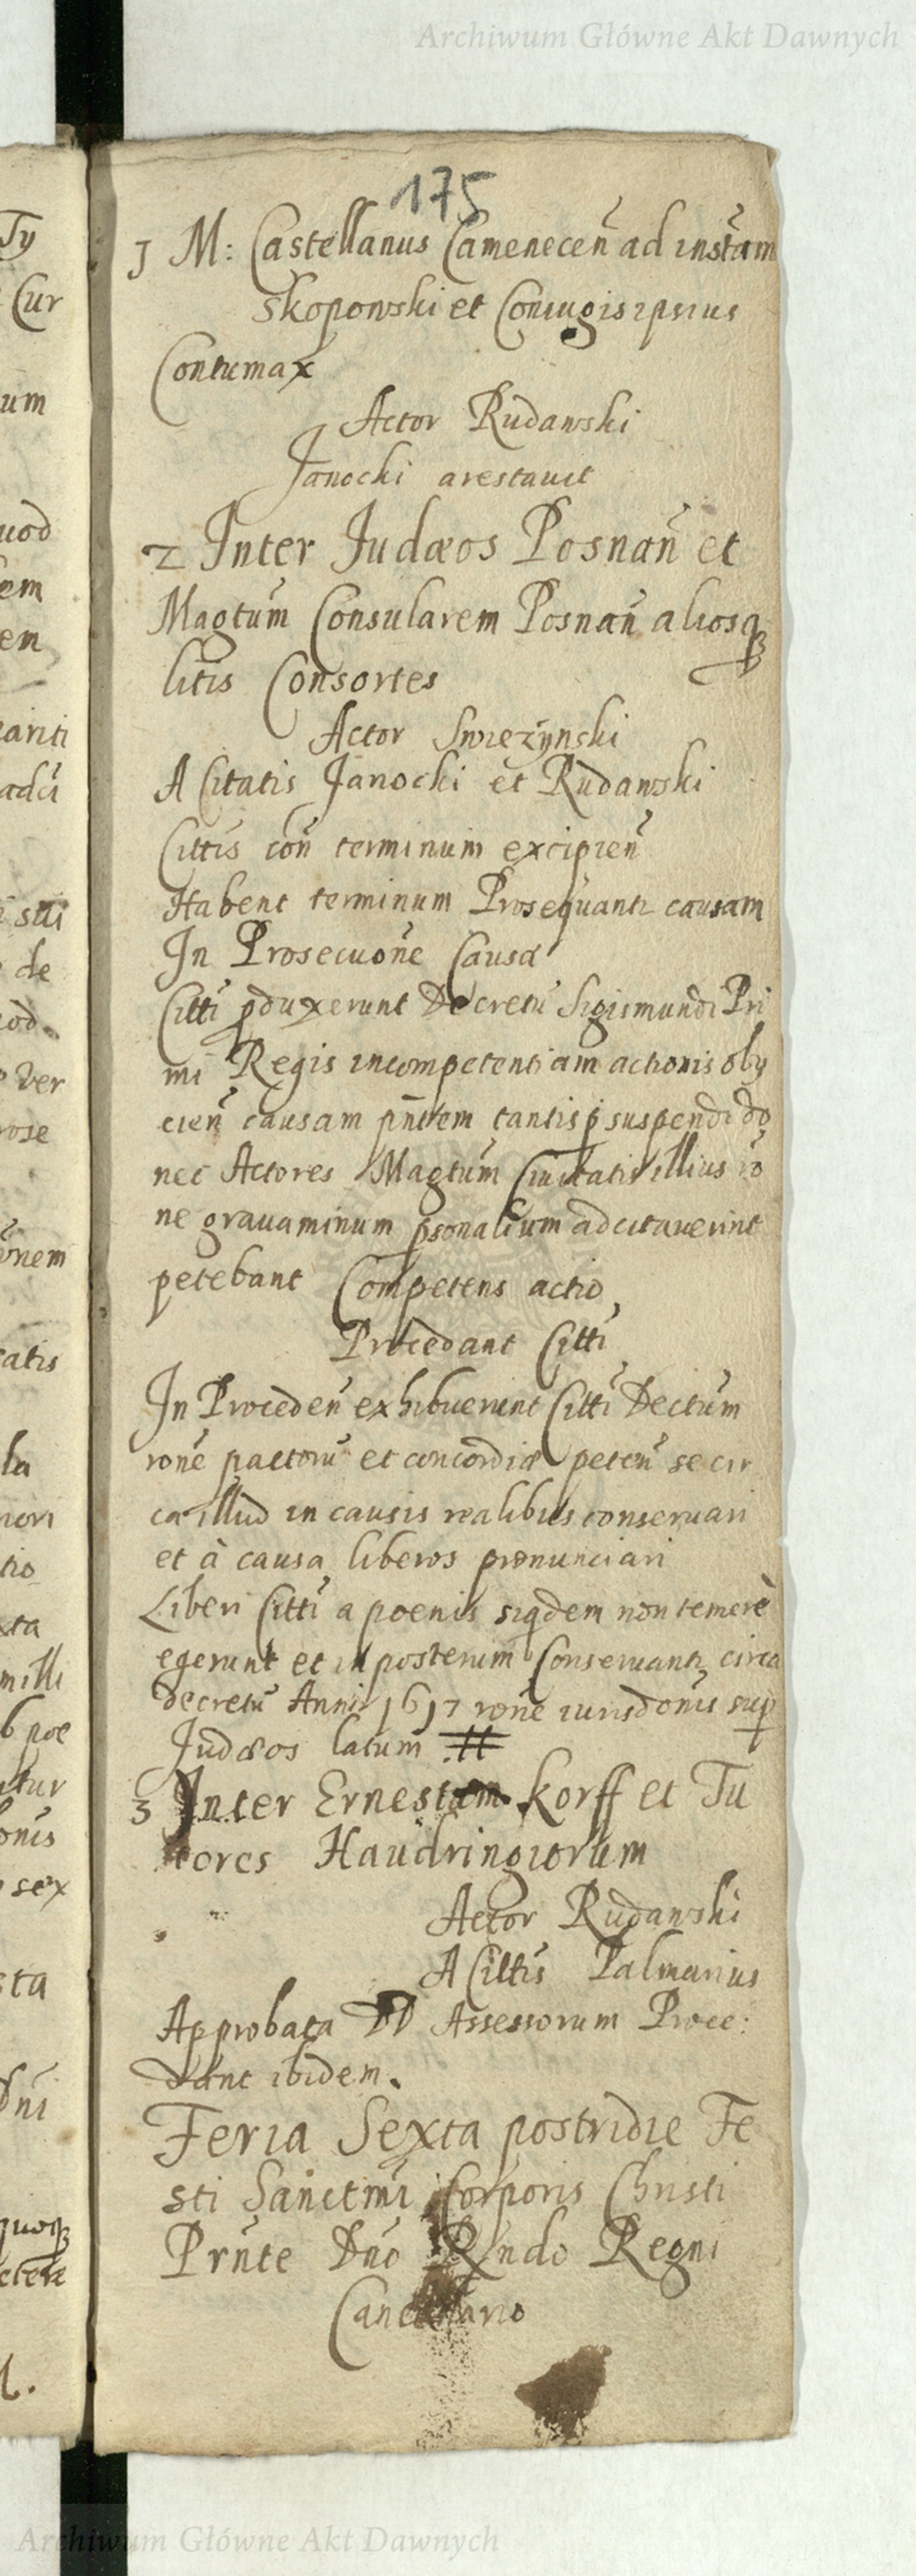 Archiwum Główne Akt Dawnych
175
1 M: Castellanus Camenecen̄ ad instam
Skopowski et Coniugis ipsius
Contumax
Actor Rudawski
Janocki arestavit
2 Inter Judæos Posnan̄ et
Magtum Consularem Posnan̄ aliosqꝫ
litis Consortes
Actor Swiezynski
A Citatis Janocki et Rudawski
Cittis con̄ terminum excipien̄
Habent terminum Prosequantr causam
In Prosecuōne Causæ
Citti ꝓduxerunt Decretū Sigismundi Pri
mi Regis incompetentiam actionis oby
cien̄ causam pn̄tem tantisꝑ suspendi do
nec Actores Magtum Civitatis illius rō
ne gravaminum ꝑsonalium adcitaverint
petebant Competens actio
Procedant Citti
In Proceden̄ exhibuerunt Citti Dectum
rōne pactorū et concordiæ peten̄ se cir
ca illud in causis realibus conservari
et à causa liberos pronunciari
Liberi Citti a poenis siqdem non temerè
egerunt et in posterum Conservantr circa
decretū Anni 1617 rōne iurisdonis suꝑ
Judæos latum
3 Inter Ernestum Korff et Tu
tores Haudringiorum
Actor Rudawski
A Cittis Palmarius
Approbata DD Assessorum Proce:
dant ibidem.
Feria Sexta postridie Fe
sti Sanctmi Corporis Christi
Prn̄te Dn̄o Rn̄do Regni
Cancellario
Ty
Cur
um
uod
em
en
ariti
adū
sui
de
eod.
ver
rose
ōnem
catis
la
nori
tio
xta
milli
b poe
atur
onis
sex
sta
Dn̄i
quoqꝫ
ctera
l.
Archiwum Główne Akt Dawnych